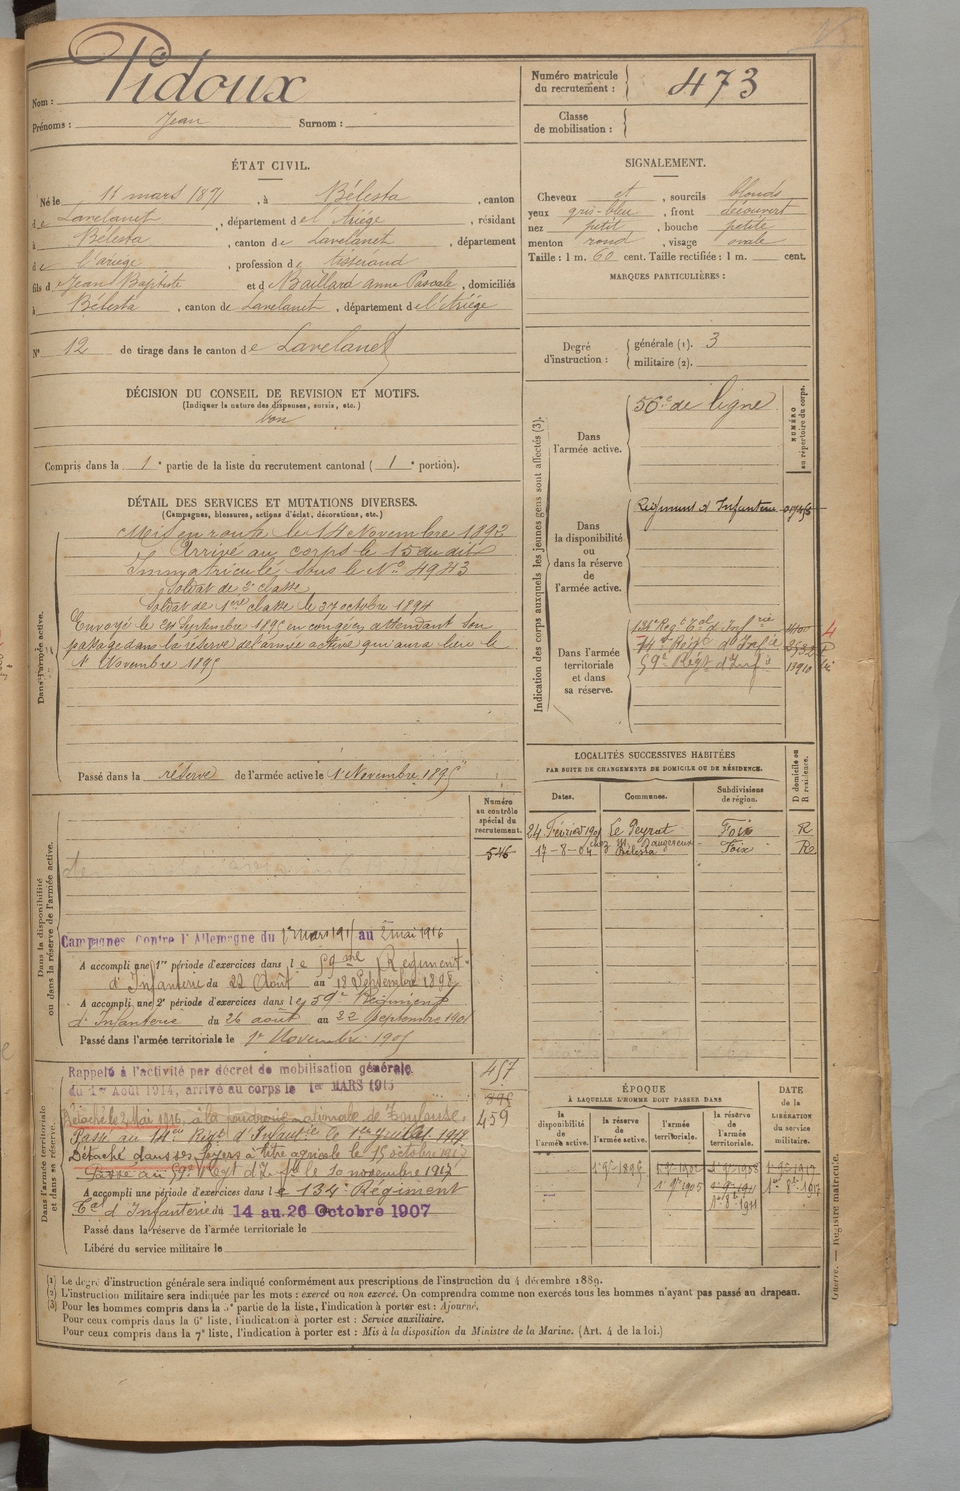 Nom : Pidoux
Prénoms : Jean Surnom :
Numéro matricule du recrutement : 473
Classe de mobilisation :
ÉTAT CIVIL.
Né le 11 mars 1871, à Bélesta, canton
de Lavelanet, département de l'Ariége, résidant
à Bélesta, canton de Lavelanet, département
de l'ariège, profession de tisserand
fils d Jean Baptiste et d Baillard anne Pascale, domiciliés
à Bélesta, canton de Lavelanet, département de l'Ariége
N° 12 de tirage dans le canton de Lavelanet
SIGNALEMENT.
Cheveux et, sourcils blonds
yeux gris-bleu, front découvert
nez petit, bouche petite
menton rond, visage ovale
Taille : 1 m. 60 cent. Taille rectifiée : 1 m. cent.
MARQUES PARTICULIÈRES :
Degré d'instruction : générale (1). 3
militaire (2).
DÉCISION DU CONSEIL DE REVISION ET MOTIFS.
(Indiquer la nature des dispenses, sursis, etc.)
bon
Compris dans la 1e partie de la liste du recrutement cantonal (1e portion).
DÉTAIL DES SERVICES ET MUTATIONS DIVERSES.
(Campagnes, blessures, actions d'éclat, décorations, etc.)
Dans l'armée active.
Mis en route le 14 Novembre 1892
Arrivé au corps le 15 du dit
Immatriculé sous le N° 4943
Soldat de 2e classe
Soldat de 1ere classe le 27 octobre 1894
Envoyé le 24 Septembre 1895 en congé en attendant son
passage dans la réserve de l'armée active qui aura lieu le
1r Novembre 1895
Passé dans la réserve de l'armée active le 1r Novembre 1895
Dans la disponibilité ou dans la réserve de l'armée active.
Numéro au contrôle spécial du recrutement.
546
Campagnes contre l'Allemagne du 1er mars 1915 au 2 mai 1916
A accompli une 1re période d'exercices dans le 59ème Régiment
d'Infanterie du 22 Août au 18 Septembre 1898
A accompli une 2e période d'exercices dans le 59e Régiment
d'Infanterie du 26 août au 22 Septembre 1901
Passé dans l'armée territoriale le 1er Novembre 1905
Dans l'armée territoriale et dans sa réserve.
Rappelé à l'activité par décret de mobilisation générale
du 1er Août 1914, arrivé au corps le 1er MARS 1915
Détaché le 2 Mai 1916, à la poudrerie nationale de Toulouse.
Passé au 14eme Régt d'Infanterie le 1er Juillet 1917
Détaché dans ses foyers à titre agricole le 15 octobre 1917
Passé au 59e Régt d'Inf le 10 novembre 1917
457
459
A accompli une période d'exercices dans le 134e Régiment
Tal d'Infanterie du 14 au 26 Octobre 1907
Passé dans la réserve de l'armée territoriale le
Libéré du service militaire le
Indication des corps auxquels les jeunes gens sont affectés (3).
NUMÉRO au répertoire du corps.
Dans l'armée active. 56e de ligne
Dans la disponibilité ou dans la réserve de l'armée active. Régiment d'Infanterie
Dans l'armée territoriale et dans sa réserve.
134e Regt Tal d'Infrie
14e Régt d'Infie
59e Régt d'Infie 13910
LOCALITÉS SUCCESSIVES HABITÉES
PAR SUITE DE CHANGEMENTS DE DOMICILE OU DE RÉSIDENCE.
Dates. Communes. Subdivisions de région. D domicile ou R résidence.
24 Février 1901 Le Peyrat Foix R
17-8-04 Bélesta Foix R
ÉPOQUE
À LAQUELLE L'HOMME DOIT PASSER DANS
DATE de la LIBÉRATION du service militaire.
la disponibilité de l'armée active. la réserve de l'armée active. l'armée territoriale. la réserve de l'armée territoriale.
1r 9re 1895
1r 9re 1905
1er 8e 1911
1er 8e 1917
(1) Le degré d'instruction générale sera indiqué conformément aux prescriptions de l'instruction du 4 décembre 1889.
(2) L'instruction militaire sera indiquée par les mots : exercé ou non exercé. On comprendra comme non exercés tous les hommes n'ayant pas passé au drapeau.
(3) Pour les hommes compris dans la 5e partie de la liste, l'indication à porter est : Ajourné.
Pour ceux compris dans la 6e liste, l'indication à porter est : Service auxiliaire.
Pour ceux compris dans la 7e liste, l'indication à porter est : Mis à la disposition du Ministre de la Marine. (Art. 4 de la loi.)
Guerre. — Registre matricule.